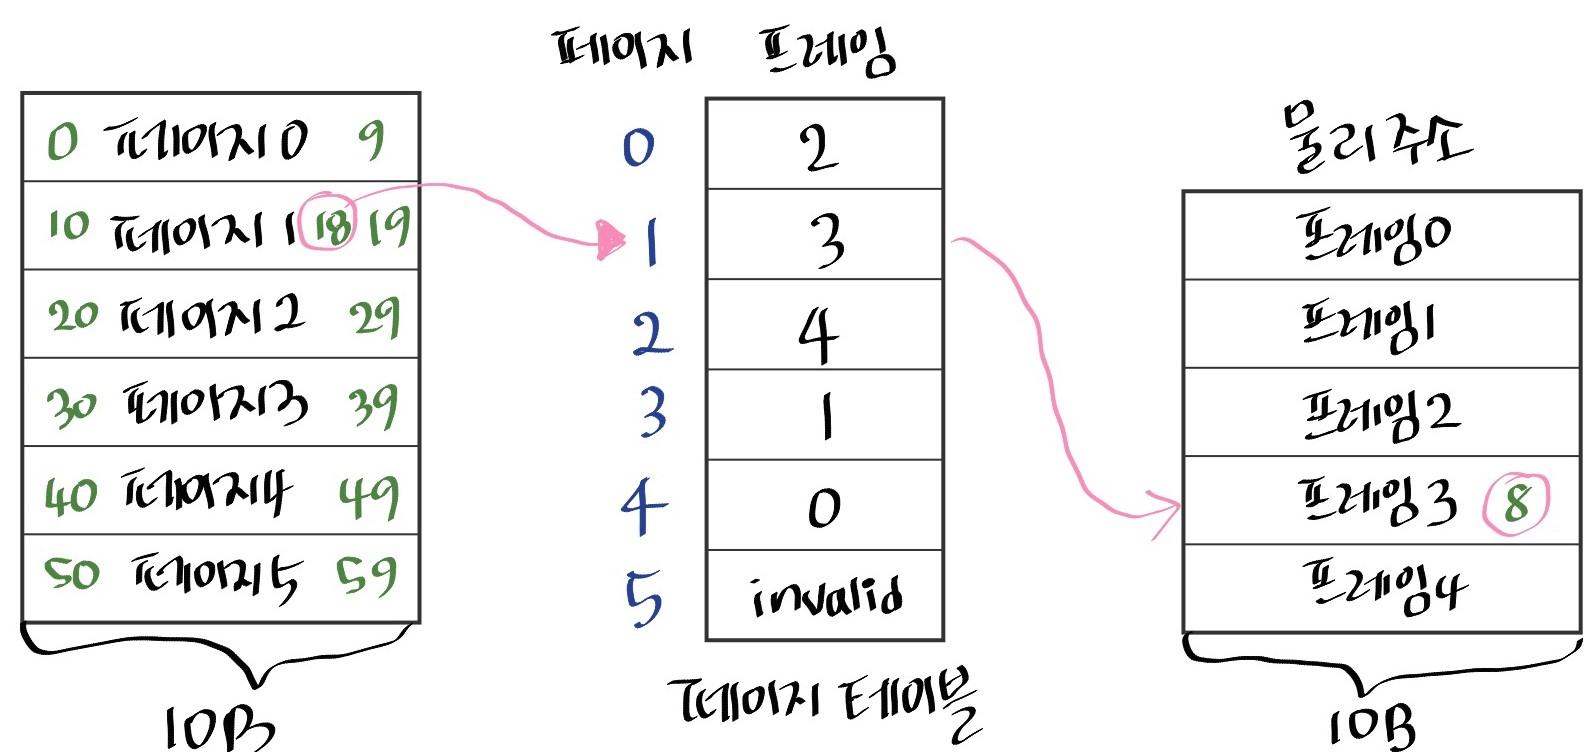 페이지 프레임
물리 주소
0 페이지 0 9
10 페이지 1 18 19
20 페이지 2 29
30 페이지 3 39
40 페이지 4 49
50 페이지 5 59
10B
0 2
1 3
2 4
3 1
4 0
5 invalid
페이지 테이블
프레임 0
프레임 1
프레임 2
프레임 3 8
프레임 4
10B